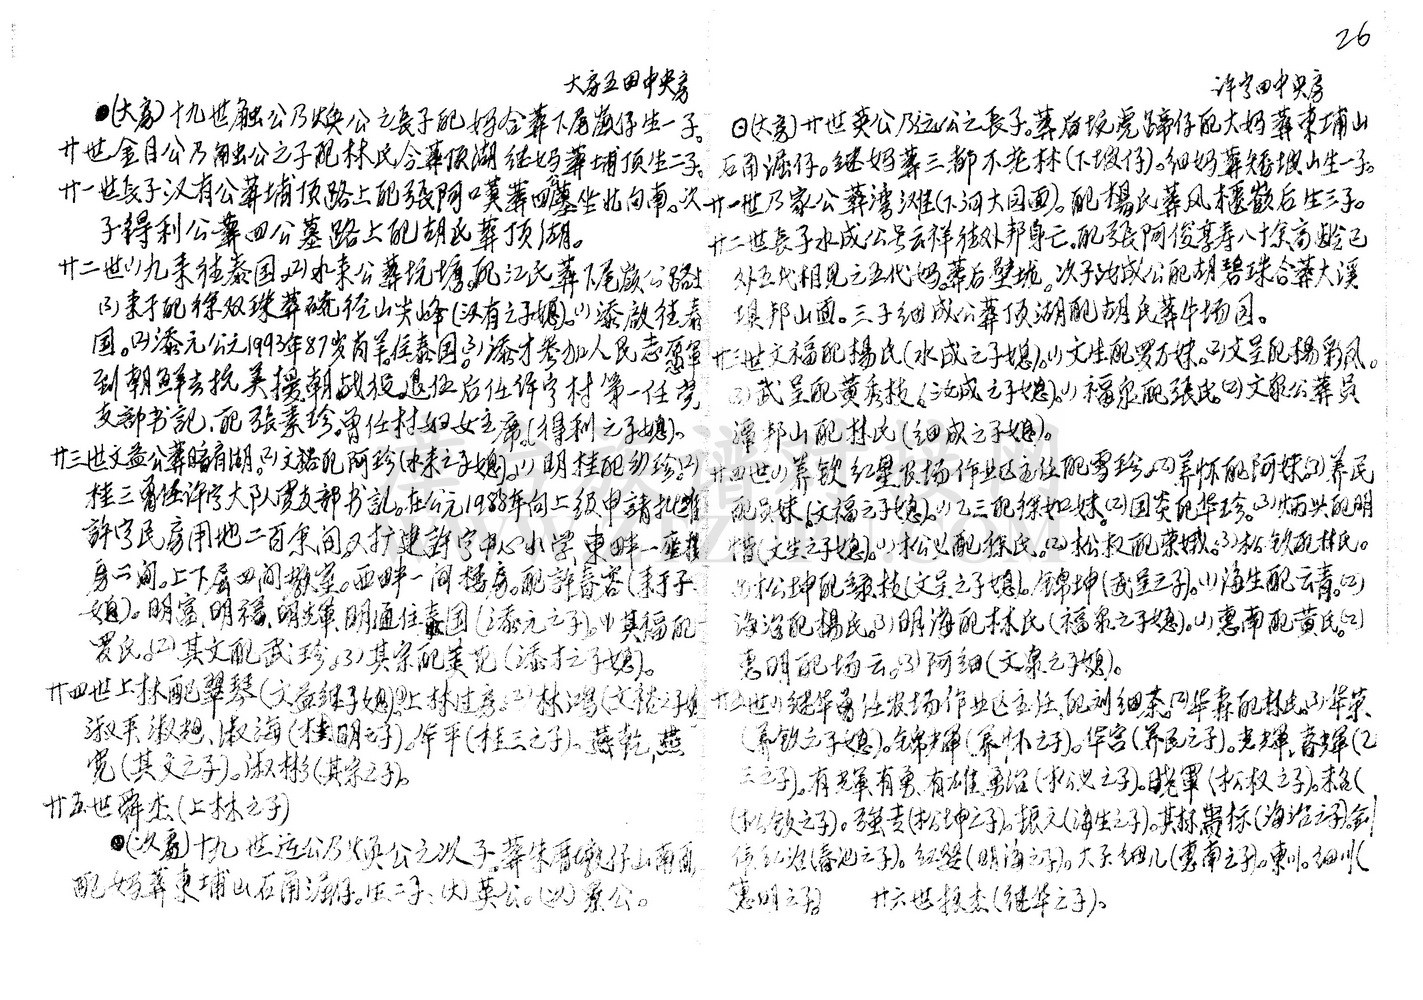 26
大房五田中央房
●(大房)十九世触公乃焕公之長子配妈合葬下尾嶺仔生一子。
廿世金目公乃触公之子配林氏合葬顶湖继妈葬埔顶生二子。
廿一世長子汉有公葬埔顶路上配張阿口葬四公墓坐北向南。次
子得利公葬四公墓路上配胡氏葬顶湖。
廿二世(1)九来往泰国。(2)水来公葬坑塘。配江氏葬下尾嶺公路
(3)来于配徐双珠葬硫径山尖峰(汉有之子媳)。(1)添啟往泰
国。(2)添元公元1993年87岁尚往泰国。(3)添才参加人民志愿軍
到朝鲜去抗美援朝战役。退伍后任许宇村第一任党
支部书記。配張素珍。曾任村妇女主席。(得利之子媳)。
廿三世文益公葬暗角湖。(2)文裕配阿珍(水来之子媳)。(1)明桂配珍。(2)
桂三曾任许宇大队支部书記。在公元1986年向上级申請批准
許宇民房用地二百余间。又扩建許宇中心小学,東畔一座
房二间。上下房四间教室。西畔一间楼房。配許春容(来于子
媳)。明富、明福、明輝、明通住泰国(添元之子)。(1)其福配
罗氏。(2)其文配武珍。(3)其宗配美花(添才之子媳)。
廿四世上林配翠琴(文益继子媳)上林过房。(2)林鸿(文裕之子
淑平淑想,淑海(桂明之子)。华平(桂三之子)。燕乾,燕
宽(其文之子)。淑彬(其宗之子)。
廿五世舜杰(上林之子)
●(次房)十九世运公乃焕公之次子。葬朱厝墩仔山南面
配妈葬東埔山石角湖仔。生二子:(大)英公。(次)察公。
许宇田中央房
(大房)廿世英公乃运公之長子。葬后坡虎蹄仔配大妈葬東埔山
石角湖仔。继妈葬三都不花林(下坡仔)。细妈葬矮坡山生一子。
廿一世乃家公葬湾滩(下河大园面)。配楊氏葬风楼嶺后生三子。
廿二世長子水成公号云祥往外邦身亡。配張阿俊享寿八十余高龄已
外五代相見之五代妈。葬后壁坑。次子汝成公配胡碧珠合葬大溪
埧邦山面。三子细成公葬顶湖配胡氏葬牛场园。
廿三世文福配楊氏(水成之子媳)。(1)文生配罗万妹。(2)文呈配楊彩凤。
(3)武呈配黄秀枝(汝成之子媳)。(1)福泉配張氏。(2)文泉公葬员
潭邦山配林氏(细成之子媳)。
廿四世(1)养钦红星农场作业区主任配雪珍。(2)养怀配阿妹。(3)养民
配吴妹(文福之子媳)。(1)乙三配徐如妹。(2)国炎配华珍。(3)炳兴配明
惜(文生之子媳)。(1)松义配徐氏。(2)松权配荣娥。(3)松钦配林氏。
(4)松坤配绿枝(文呈之子媳)。锦坤(武呈之子)。(1)海生配云青。(2)
海治配楊氏。(3)明海配林氏(福泉之子媳)。(1)惠南配黄氏。(2)
惠明配场云。(3)阿细(文泉之子媳)。
廿五世(1)继华曾任农场作业区主任,配刘细茶。(2)华森配林氏。(3)华荣
(养钦之子媳)。锦輝(养怀之子)。华宫(养民之子)。光輝,春輝(乙
三之子)。有輝有勇,有雄,勇治(松义之子)。曉軍(松权之子)。来名(
(松钦之子)。强吉(松坤之子)。振元(海生之子)。其林貴标(海治之子)。剑
伟红治(春池之子)。红盟(明海之子)。大子细儿(惠南之子)。東川。细川(
惠明之子)　廿六世振杰(继华之子)。